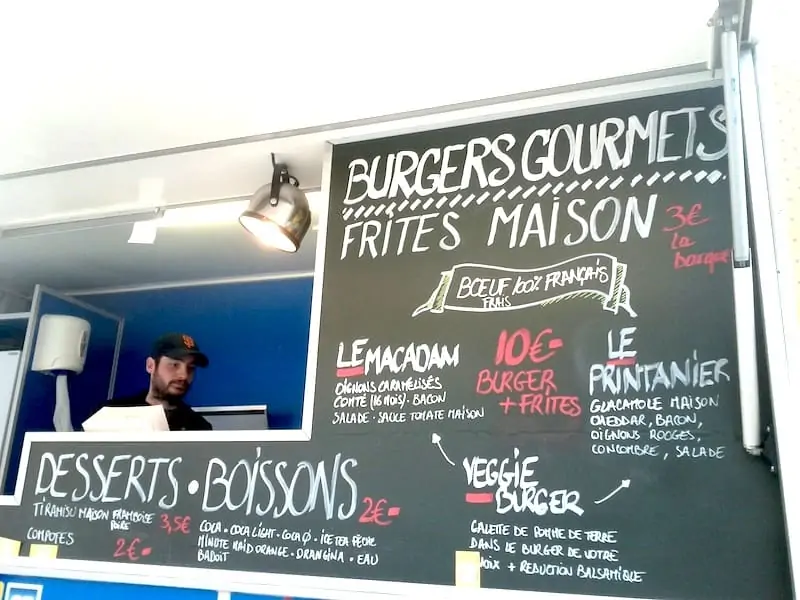 BURGERS GOURMETS
FRITES MAISON
3€
la
barque
BŒUF 100% FRANÇAIS
FRAIS
LE MACADAM
OIGNONS CARAMÉLISÉS
COMTÉ (16 MOIS) · BACON
SALADE · SAUCE TOMATE MAISON
10€-
BURGER
+ FRITES
LE
PRINTANIER
GUACAMOLE MAISON
CHEDDAR, BACON,
OIGNONS ROUGES,
CONCOMBRE, SALADE
VEGGIE
BURGER
GALETTE DE POMME DE TERRE
DANS LE BURGER DE VOTRE
+ REDUCTION BALSAMIQUE
DESSERTS · BOISSONS
TIRAMISU MAISON FRAMBOISE
POIRE
3,5€
COMPOTES
2€-
2€-
COCA · COCA LIGHT · COCA Ø · ICE TEA PÊCHE
MINUTE MAID ORANGE · ORANGINA · EAU
BADOIT
SF